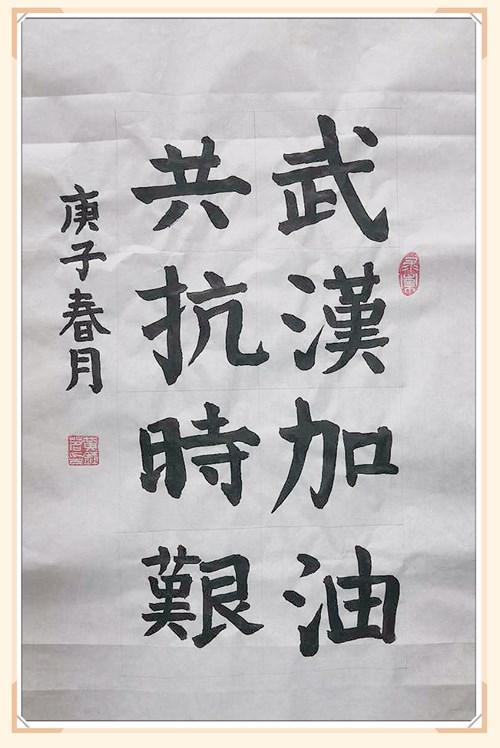 武漢加油
共抗時艱
庚子春月